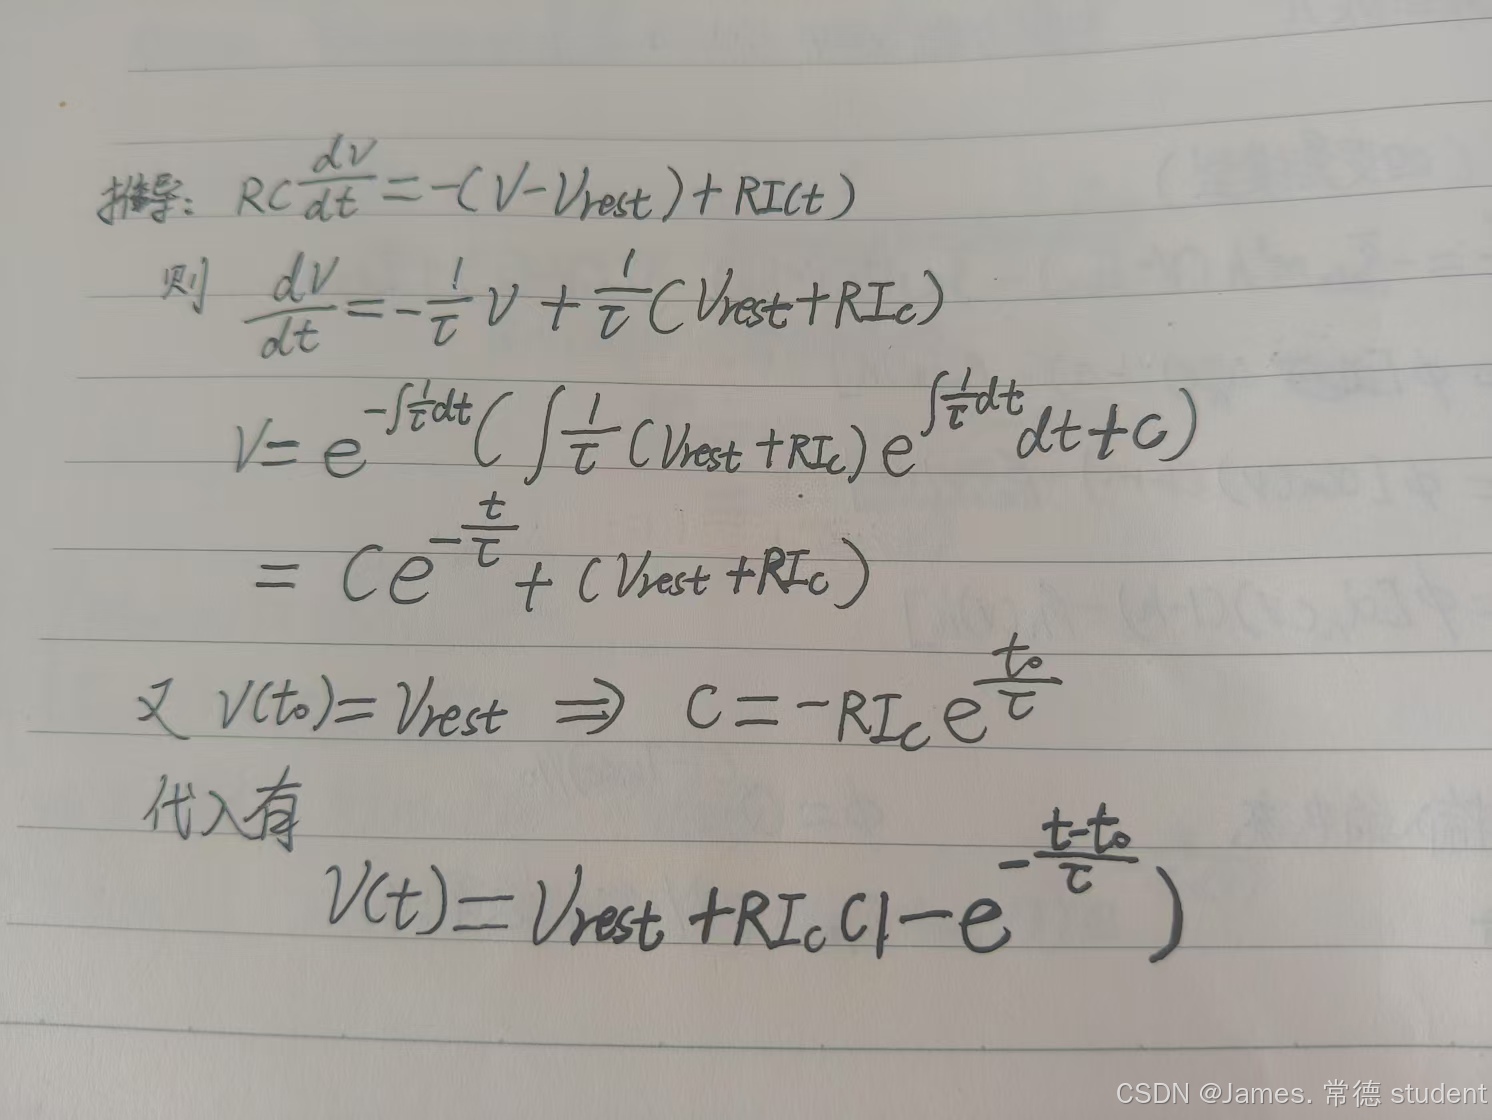 推导: RC dV/dt = -(V-Vrest)+RI(t)
则 dV/dt = -1/τ V + 1/τ (Vrest+RIc)
V= e^(-∫1/τ dt) ( ∫ 1/τ (Vrest+RIc) e^(∫1/τ dt) dt+c)
= Ce^(-t/τ) + (Vrest+RIc)
又 V(t₀)= Vrest ⇒ C=-RIc e^(t₀/τ)
代入有
V(t)= Vrest +RIc(1-e^(-(t-t₀)/τ))
CSDN @James. 常德 student